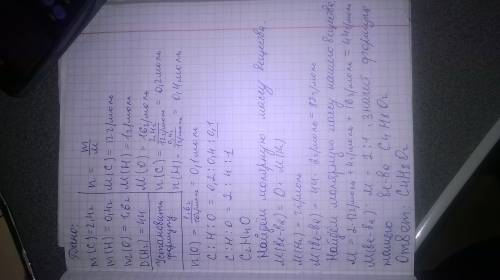 Дано:
m(C)=2,4г
m(H)=0,4г
m(O)=1,6г
D(H₂)=44
Установить
формулу
n = m/M
M(C)=12г/моль
M(H)=1г/моль
M(O)=16г/моль
n(C)=2,4г/12г/моль=0,2моль
n(H)=0,4г/1г/моль=0,4моль
n(O)=1,6г/16г/моль=0,1моль
C:H:O=0,2:0,4:0,1
C:H:O=2:4:1
C₂H₄O
Найдём молярную массу вещества
M(в-ва)=D·M(H₂)
M(H₂)=2г/моль
M(в-ва)=44·2г/моль=88г/моль
Найдём молярную массу нашего вещества
M=2·12г/моль+4г/моль+16г/моль=44г/моль
M(в-ва):M=2:1, значит формула
нашего в-ва C₄H₈O₂
Ответ C₄H₈O₂